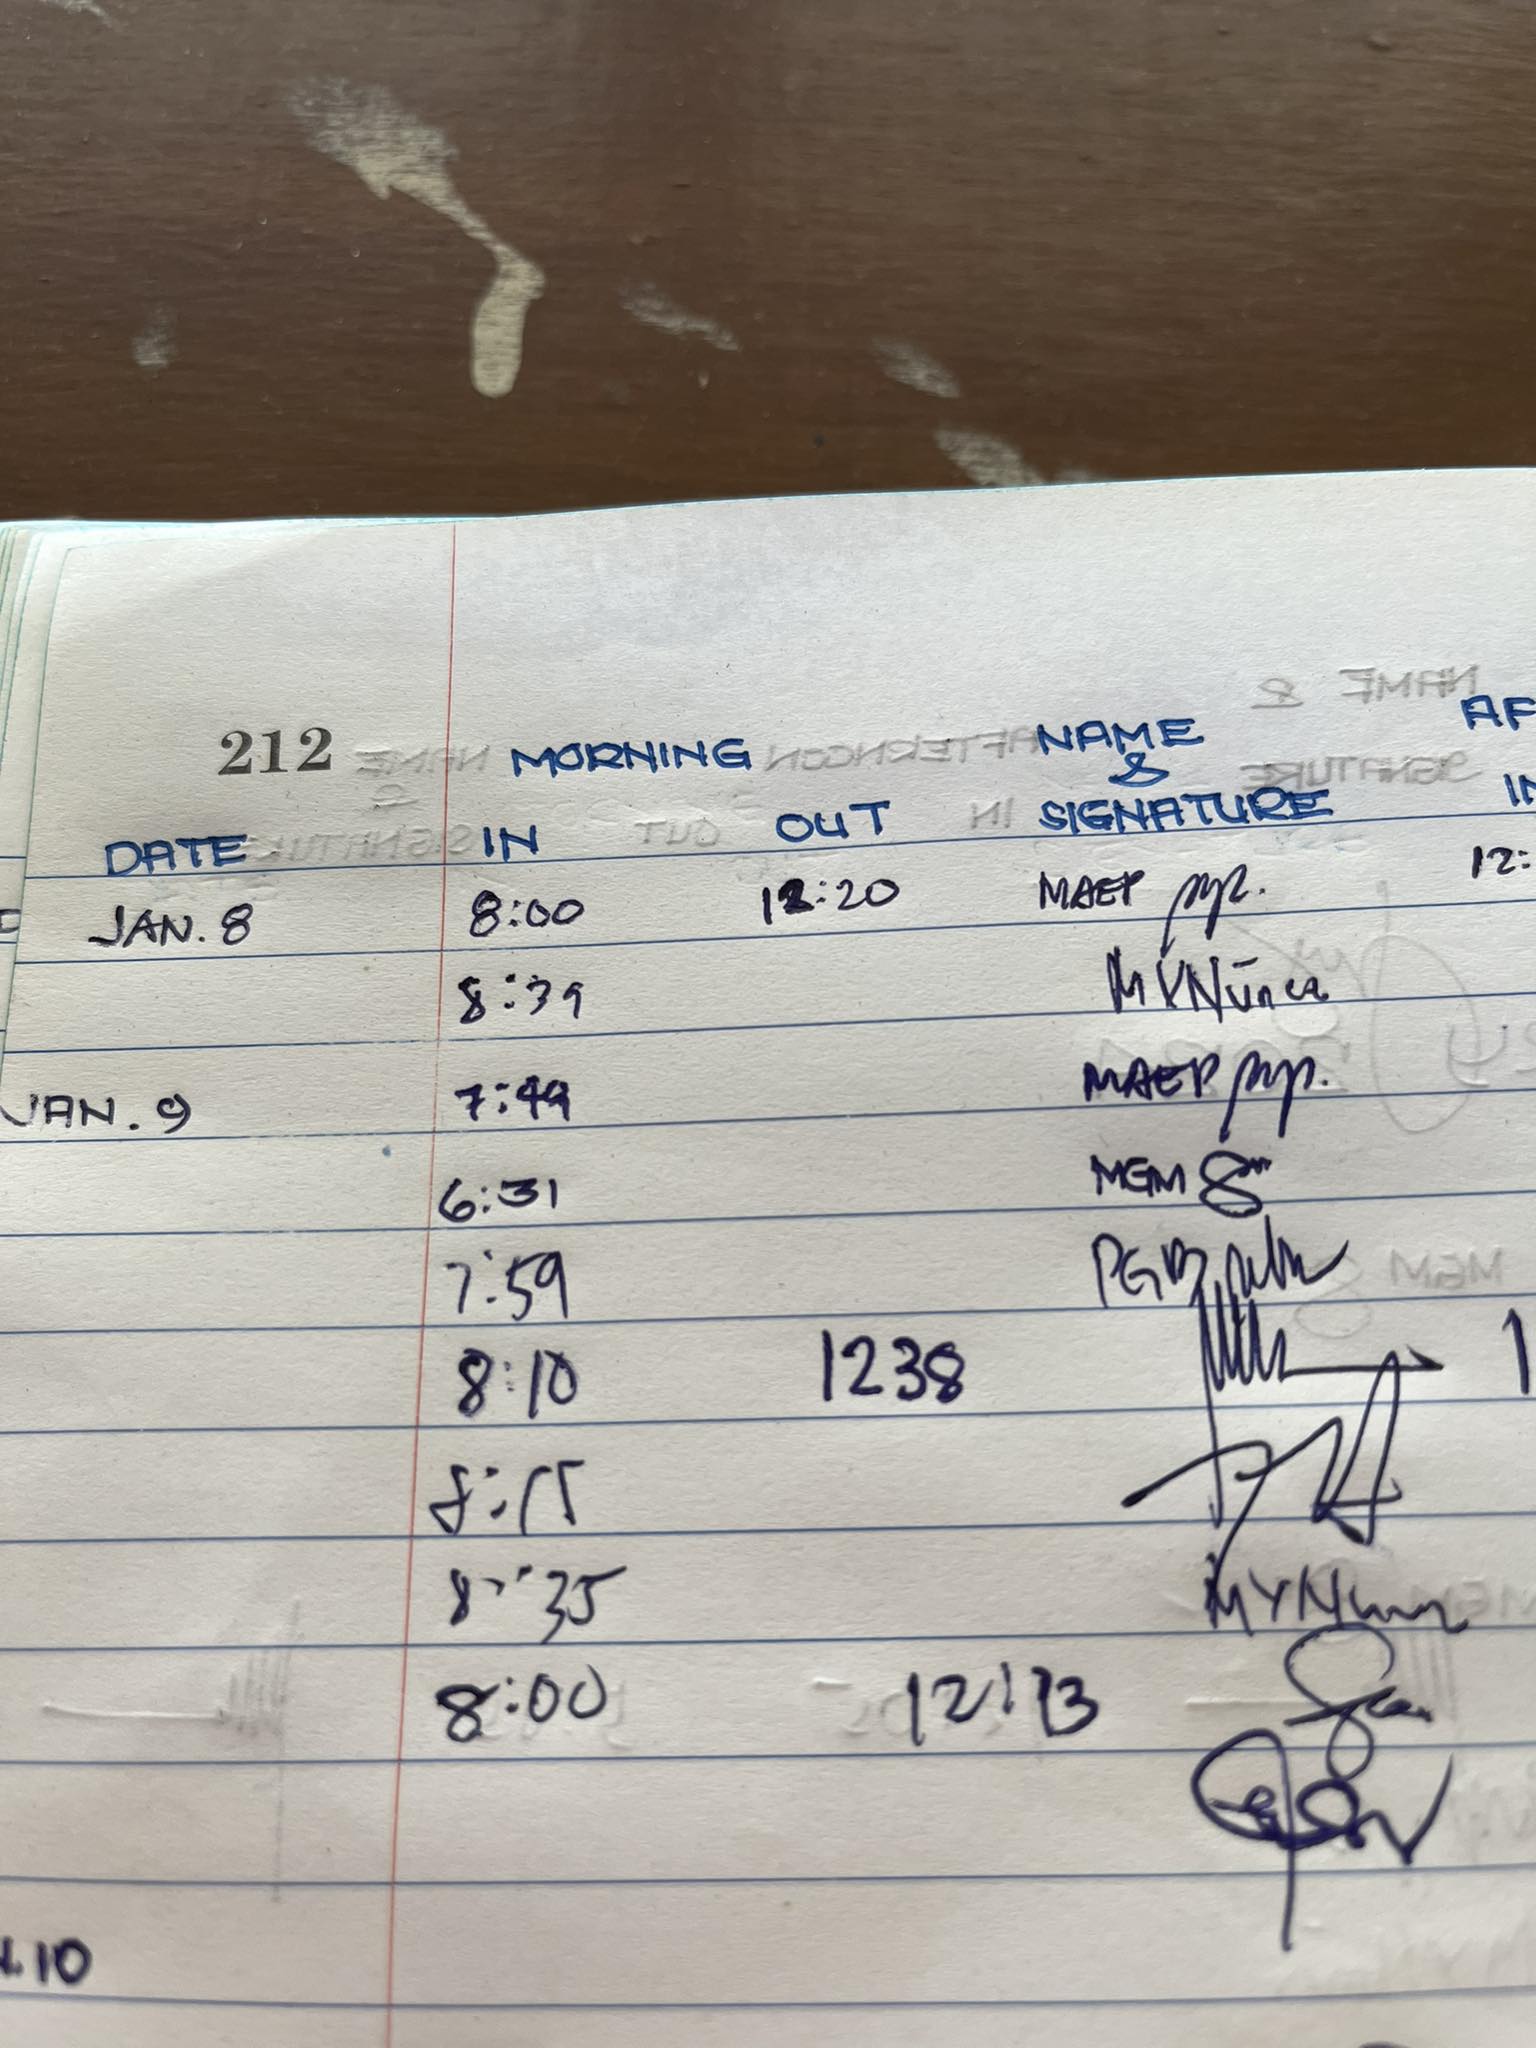 212 MORNING NAME & AF
DATE IN OUT SIGNATURE IN
JAN. 8 8:00 12:20 MAEP 12:
8:39
JAN. 9 7:49 MAEP
6:31 MGM
7:59 PGB
8:10 1238 1
8:15
8:35
8:00 12:13
10